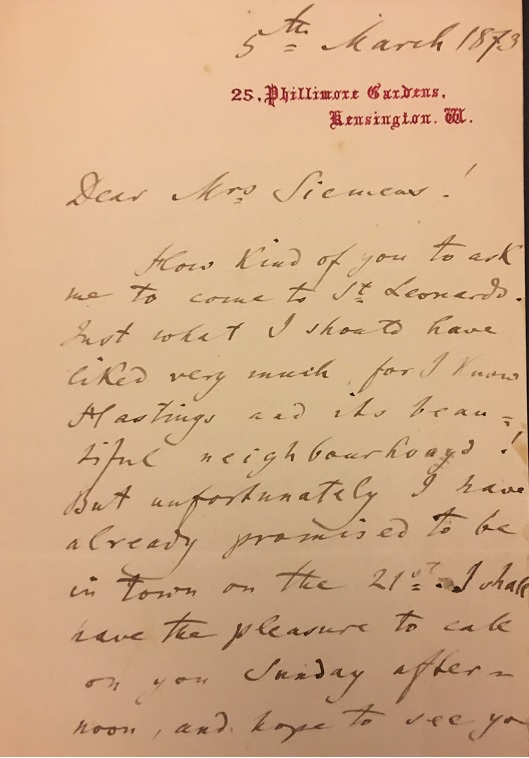 5th March 1873
25, Phillimore Gardens,
Kensington. W.
Dear Mrs Siemens!
How kind of you to ask
me to come to St Leonards.
Just what I should have
liked very much, for I know
Hastings and its beau=
tiful neighbourhoayd.!
But unfortunately I have
already promised to be
in town on the 21st. I shall
have the pleasure to call
on you Sunday after=
noon, and hope to see you